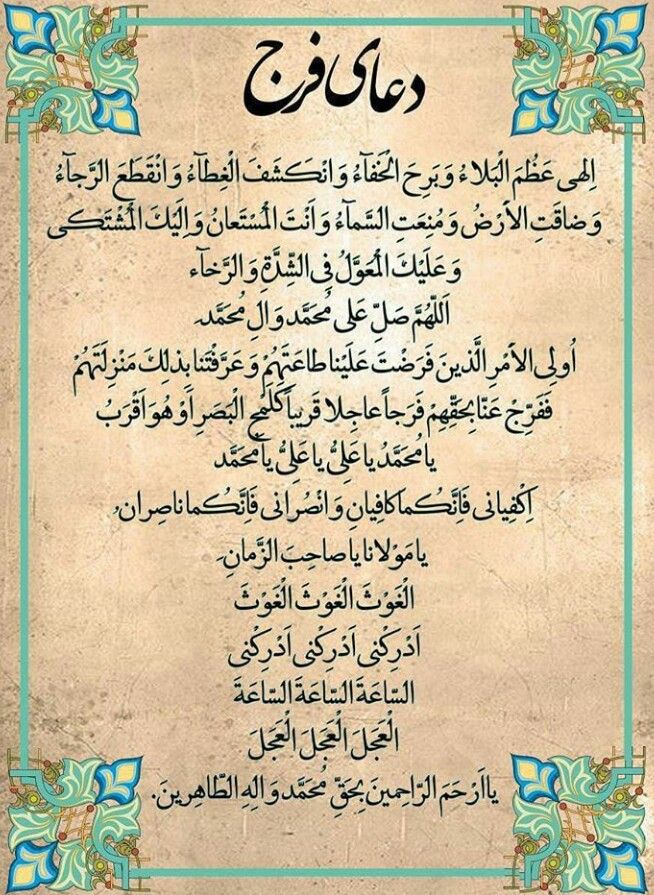 دعای فرج
اِلهی عَظُمَ الْبَلاءُ وَبَرِحَ الْخَفآءُ وَانْكَشَفَ الْغِطآءُ وَانْقَطَعَ الرَّجآءُ
وَضاقَتِ الاَرْضُ وَمُنِعَتِ السَّمآءُ وَاَنْتَ الْمُسْتَعانُ وَاِلَيْكَ الْمُشْتَكى
وَعَلَيْكَ الْمُعَوَّلُ فِى الشِّدَّةِ وَالرَّخآء
اَللّهُمَّ صَلِّ عَلى مُحَمَّد وَالِ مُحَمَّد.
اُولِى الاَمْرِ الَّذينَ فَرَضْتَ عَلَيْنا طاعَتَهُمْ وَعَرَّفْتَنا بِذلِكَ مَنْزِلَتَهُمْ
فَفَرِّجْ عَنّا بِحَقِّهِمْ فَرَجاً عاجِلا قَريباً كَلَمْحِ الْبَصَرِ اَوْ هُوَ اَقْرَبُ
يا مُحَمَّدُ يا عَلِىُّ يا عَلِىُّ يا مُحَمَّد
اِكْفِيانى فَاِنَّكُما كافِيانِ وَانْصُرانى فَاِنَّكُما ناصِران.
يا مَوْلانا يا صاحِبَ الزَّمانِ.
الْغَوْثَ الْغَوْثَ الْغَوْثَ
اَدْرِكْنى اَدْرِكْنى اَدْرِكْنى
السّاعَةَ السّاعَةَ السّاعَةَ
الْعَجَلَ الْعَجَلَ الْعَجَلَ
يا اَرْحَمَ الرّاحِمينَ بِحَقِّ مُحَمَّد وَالِهِ الطّاهِرينَ.